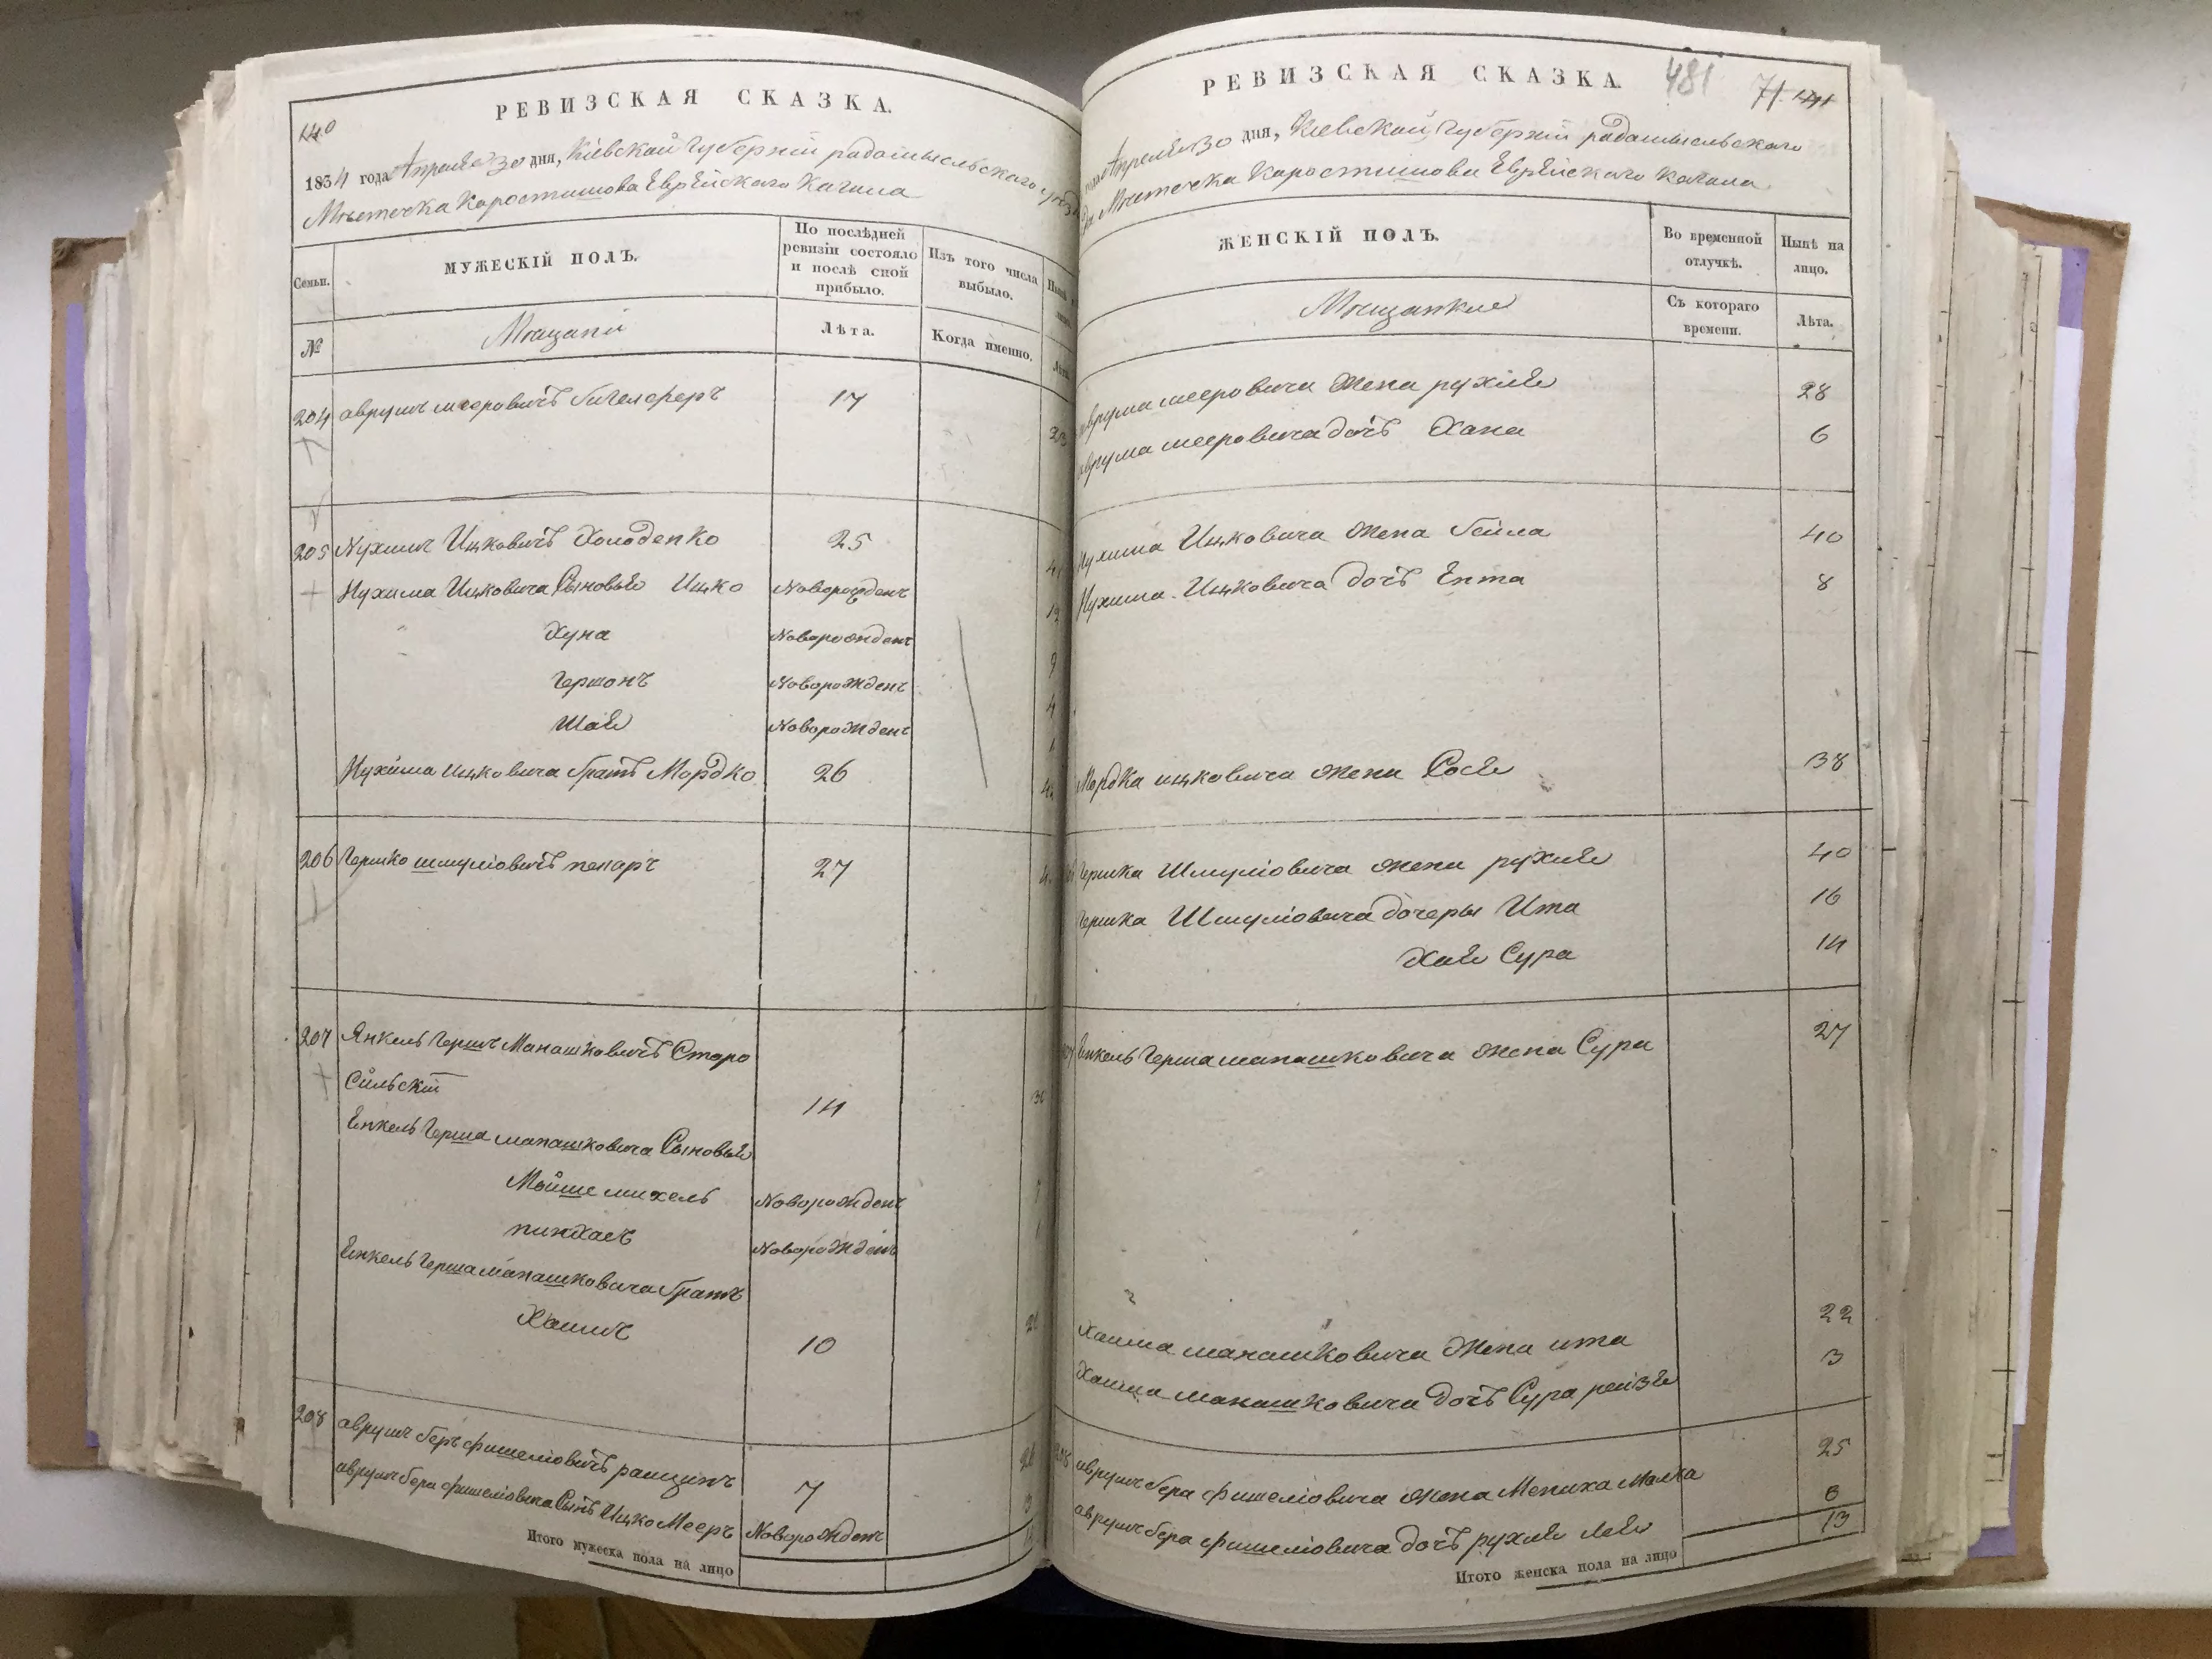 140
РЕВИЗСКАЯ СКАЗКА.
1834 года Апреля 30 дня, Кіевской Губерніи радомысльского уезда
Местечка Коростишова Еврейского Кагала
Семьи.
МУЖЕСКІЙ ПОЛЪ.
По послѣдней ревизіи состояло и послѣ сной прибыло.
Изъ того числа выбыло.
№
Мещани
Лѣта.
Когда именно.
204 аврумъ меэровичъ 17
205 Нухимъ Ицковичъ Холоденко 25
Нухима Ицковича Сыновья Ицко Новорожденъ
Хуна Новорожденъ 9
Гершонъ Новорожденъ 4
Шая Новорожденъ 1
Нухима ицковича братъ Мордко 26
206 Гершко шмуліовичъ пекаръ 27
207 Янкель Гершъ Манашковичъ Старо
Сельскій 14 30
Енкель Герша манашковича Сыновья
Мойше михель Новорожденъ
пинхасъ Новорожденъ
Енкель Герша манашковича братъ
Хаимъ 10
208 аврумъ беръ фишеліовичъ 7
аврумъ бера фишеліовича Сынъ Ицко Мееръ Новорожденъ 3
Итого мужеска пола на лицо
РЕВИЗСКАЯ СКАЗКА.
481 71 141
Апреля 30 дня, Кіевской Губерніи радомысльского
Местечка Коростишова Еврейского Кагала
ЖЕНСКІЙ ПОЛЪ.
Во временной отлучкѣ.
Нынѣ на лицо.
Мещанки
Съ котораго времени.
Лѣта.
аврума мееровича жена рухля 28
аврума мееровича дочъ Хана 6
Нухима Ицковича жена бейла 40
Нухима Ицковича дочъ Ента 8
Мордка ицковича жена Сося 38
Гершка Шмуліовича жена рухля 40
Гершка Шмуліовича дочеры Ита 16
Хая Сура 14
Енкель Герша манашковича жена Сура 27
Хаима манашковича жена ита 22
Хаима манашковича дочъ Сура рейзя 3
208 аврумъ бера фишеліовича жена Мениха Малка 25
аврумъ бера фишеліовича дочъ рухля лея 6
Итого женска пола на лицо 13